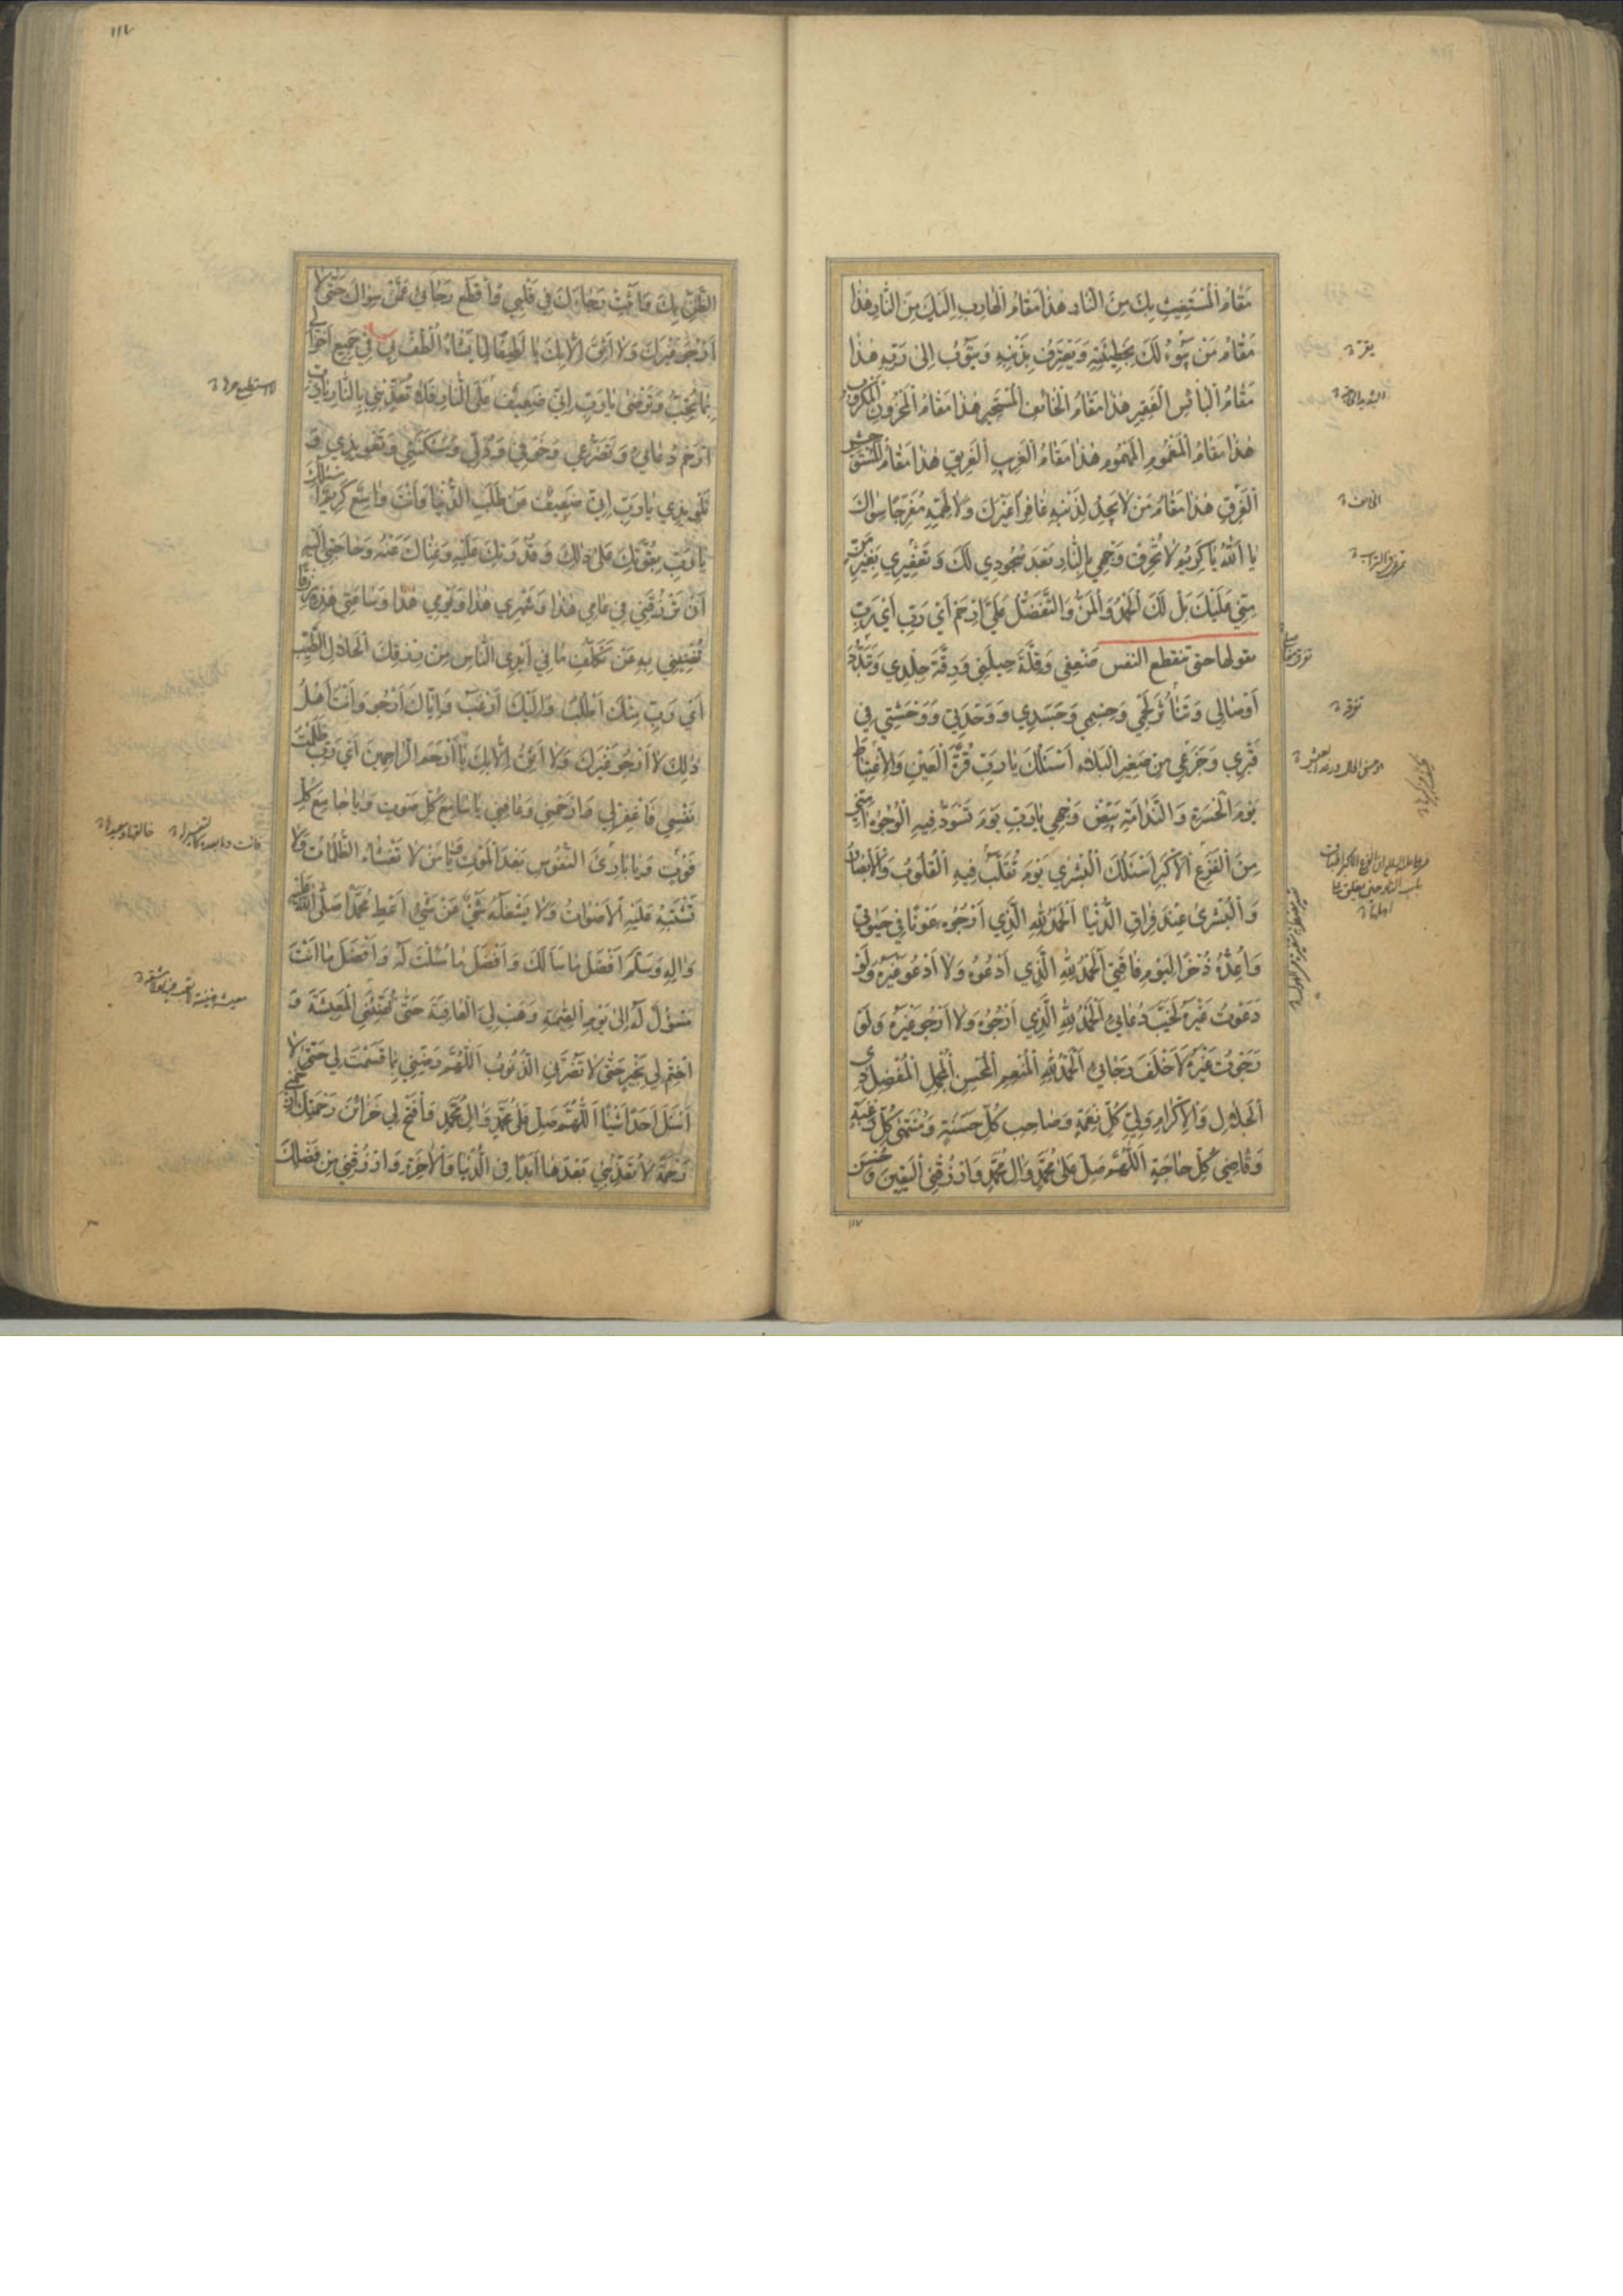 مَقَامُ الْمُسْتَغِيثِ بِكَ مِنَ النَّارِ هٰذَا مَقَامُ الْهَارِبِ اِلَيْكَ مِنَ النَّارِ هٰذَا
مَقَامُ مَنْ يَبُوءُ لَكَ بِخَطِيئَتِهِ وَيَعْتَرِفُ بِذَنْبِهِ وَيَتُوبُ اِلىٰ رَبِّهِ هٰذَا
مَقَامُ الْبَائِسِ الْفَقِيرِ هٰذَا مَقَامُ الْخَائِفِ الْمُسْتَجِيرِ هٰذَا مَقَامُ الْمَحْزُونِ الْمَكْرُوبِ
هٰذَا مَقَامُ الْمَغْمُومِ الْمَهْمُومِ هٰذَا مَقَامُ الْغَرِيبِ الْغَرِيقِ هٰذَا مَقَامُ الْمُسْتَوْحِشِ
الْفَرِقِ هٰذَا مَقَامُ مَنْ لَا يَجِدُ لِذَنْبِهِ غَافِرًا غَيْرَكَ وَلَا لِهَمِّهِ مُفَرِّجًا سِوَاكَ
يَا اَللّٰهُ يَا كَرِيمُ لَا تُحْرِقْ وَجْهِي بِالنَّارِ بَعْدَ سُجُودِي لَكَ وَتَعْفِيرِي بِغَيْرِ مَنٍّ
مِنِّي عَلَيْكَ بَلْ لَكَ الْحَمْدُ وَالْمَنُّ وَالتَّفَضُّلُ عَلَيَّ اِرْحَمْ اَيْ رَبِّ اَيْ رَبِّ
يقولها حتى ينقطع النفس ضَعْفِي وَقِلَّةَ حِيلَتِي وَرِقَّةَ جِلْدِي وَتَبَدُّدَ
اَوْصَالِي وَتَنَاثُرَ لَحْمِي وَجِسْمِي وَجَسَدِي وَوَحْدَتِي وَوَحْشَتِي فِي
قَبْرِي وَجَزَعِي مِنْ صَغِيرِ الْبَلَاءِ اَسْئَلُكَ يَا رَبِّ قُرَّةَ الْعَيْنِ وَالْاِغْتِبَاطَ
يَوْمَ الْحَسْرَةِ وَالنَّدَامَةِ بَيِّضْ وَجْهِي يَا رَبِّ يَوْمَ تَسْوَدُّ فِيهِ الْوُجُوهُ اٰمِنِّي
مِنَ الْفَزَعِ الْاَكْبَرِ اَسْئَلُكَ الْبُشْرىٰ يَوْمَ تُقَلَّبُ فِيهِ الْقُلُوبُ وَالْاَبْصَارُ
وَالْبُشْرىٰ عِنْدَ فِرَاقِ الدُّنْيَا اَلْحَمْدُ لِلّٰهِ الَّذِي اَرْجُوهُ عَوْنًا فِي حَيٰوتِي
وَاُعِدُّهُ ذُخْرًا لِيَوْمِ فَاقَتِي اَلْحَمْدُ لِلّٰهِ الَّذِي اَدْعُوهُ وَلَا اَدْعُو غَيْرَهُ وَلَوْ
دَعَوْتُ غَيْرَهُ لَخَيَّبَ دُعَائِي اَلْحَمْدُ لِلّٰهِ الَّذِي اَرْجُوهُ وَلَا اَرْجُو غَيْرَهُ وَلَوْ
رَجَوْتُ غَيْرَهُ لَاَخْلَفَ رَجَائِي اَلْحَمْدُ لِلّٰهِ الْمُنْعِمِ الْمُحْسِنِ الْمُجْمِلِ الْمُفْضِلِ ذِي
الْجَلَالِ وَالْاِكْرَامِ وَلِيِّ كُلِّ نِعْمَةٍ وَصَاحِبِ كُلِّ حَسَنَةٍ وَمُنْتَهىٰ كُلِّ رَغْبَةٍ
وَقَاضِي كُلِّ حَاجَةٍ اَللّٰهُمَّ صَلِّ عَلىٰ مُحَمَّدٍ وَاٰلِ مُحَمَّدٍ وَارْزُقْنِي الْيَقِينَ وَحُسْنَ
١١٧
١١٧
الظَّنِّ بِكَ وَاَثْبِتْ رَجَاءَكَ فِي قَلْبِي وَاقْطَعْ رَجَائِي عَمَّنْ سِوَاكَ حَتّىٰ لَا
اَرْجُوَ غَيْرَكَ وَلَا اَثِقَ اِلَّا بِكَ يَا لَطِيفًا لِمَا يَشَاءُ اُلْطُفْ لِي فِي جَمِيعِ اَحْوَالِي
بِمَا تُحِبُّ وَتَرْضىٰ يَا رَبِّ اِنِّي ضَعِيفٌ عَلَى النَّارِ فَلَا تُعَذِّبْنِي بِالنَّارِ يَا رَبِّ
ارْحَمْ دُعَائِي وَتَضَرُّعِي وَخَوْفِي وَذُلِّي وَمَسْكَنَتِي وَتَعْوِيذِي وَ
تَلْوِيذِي يَا رَبِّ اِنِّي ضَعِيفٌ عَنْ طَلَبِ الدُّنْيَا وَاَنْتَ وَاسِعٌ كَرِيمٌ اَسْئَلُكَ
يَا رَبِّ بِقُوَّتِكَ عَلىٰ ذٰلِكَ وَقُدْرَتِكَ عَلَيْهِ وَغِنَاكَ عَنْهُ وَحَاجَتِي اِلَيْهِ
اَنْ تَرْزُقَنِي فِي عَامِي هٰذَا وَشَهْرِي هٰذَا وَيَوْمِي هٰذَا وَسَاعَتِي هٰذِهِ رِزْقًا
تُغْنِينِي بِهِ عَنْ تَكَلُّفِ مَا فِي اَيْدِي النَّاسِ مِنْ رِزْقِكَ الْحَلَالِ الطَّيِّبِ
اَيْ رَبِّ مِنْكَ اَطْلُبُ وَاِلَيْكَ اَرْغَبُ وَاِيَّاكَ اَرْجُو وَاَنْتَ اَهْلُ
ذٰلِكَ لَا اَرْجُو غَيْرَكَ وَلَا اَثِقُ اِلَّا بِكَ يَا اَرْحَمَ الرَّاحِمِينَ اَيْ رَبِّ ظَلَمْتُ
نَفْسِي فَاغْفِرْ لِي وَارْحَمْنِي وَعَافِنِي يَا سَامِعَ كُلِّ صَوْتٍ وَيَا جَامِعَ كُلِّ
فَوْتٍ وَيَا بَارِئَ النُّفُوسِ بَعْدَ الْمَوْتِ يَا مَنْ لَا تَغْشَاهُ الظُّلُمَاتُ وَلَا
تَشْتَبِهُ عَلَيْهِ الْاَصْوَاتُ وَلَا يَشْغَلُهُ شَيْءٌ عَنْ شَيْءٍ اَعْطِ مُحَمَّدًا صَلَّى اللّٰهُ عَلَيْهِ
وَاٰلِهِ وَسَلَّمَ اَفْضَلَ مَا سَاَلَكَ وَاَفْضَلَ مَا سُئِلْتَ لَهُ وَاَفْضَلَ مَا اَنْتَ
مَسْؤُلٌ لَهُ اِلىٰ يَوْمِ الْقِيٰمَةِ وَهَبْ لِيَ الْعَافِيَةَ حَتّىٰ تُهَنِّئَنِي الْمَعِيشَةَ وَ
اخْتِمْ لِي بِخَيْرٍ حَتّىٰ لَا تَضُرَّنِي الذُّنُوبُ اَللّٰهُمَّ رَضِّنِي بِمَا قَسَمْتَ لِي حَتّىٰ لَا
اَسْئَلَ اَحَدًا شَيْئًا اَللّٰهُمَّ صَلِّ عَلىٰ مُحَمَّدٍ وَاٰلِ مُحَمَّدٍ وَافْتَحْ لِي خَزَائِنَ رَحْمَتِكَ وَارْحَمْنِي
رَحْمَةً لَا تُعَذِّبُنِي بَعْدَهَا اَبَدًا فِي الدُّنْيَا وَالْاٰخِرَةِ وَارْزُقْنِي مِنْ فَضْلِكَ